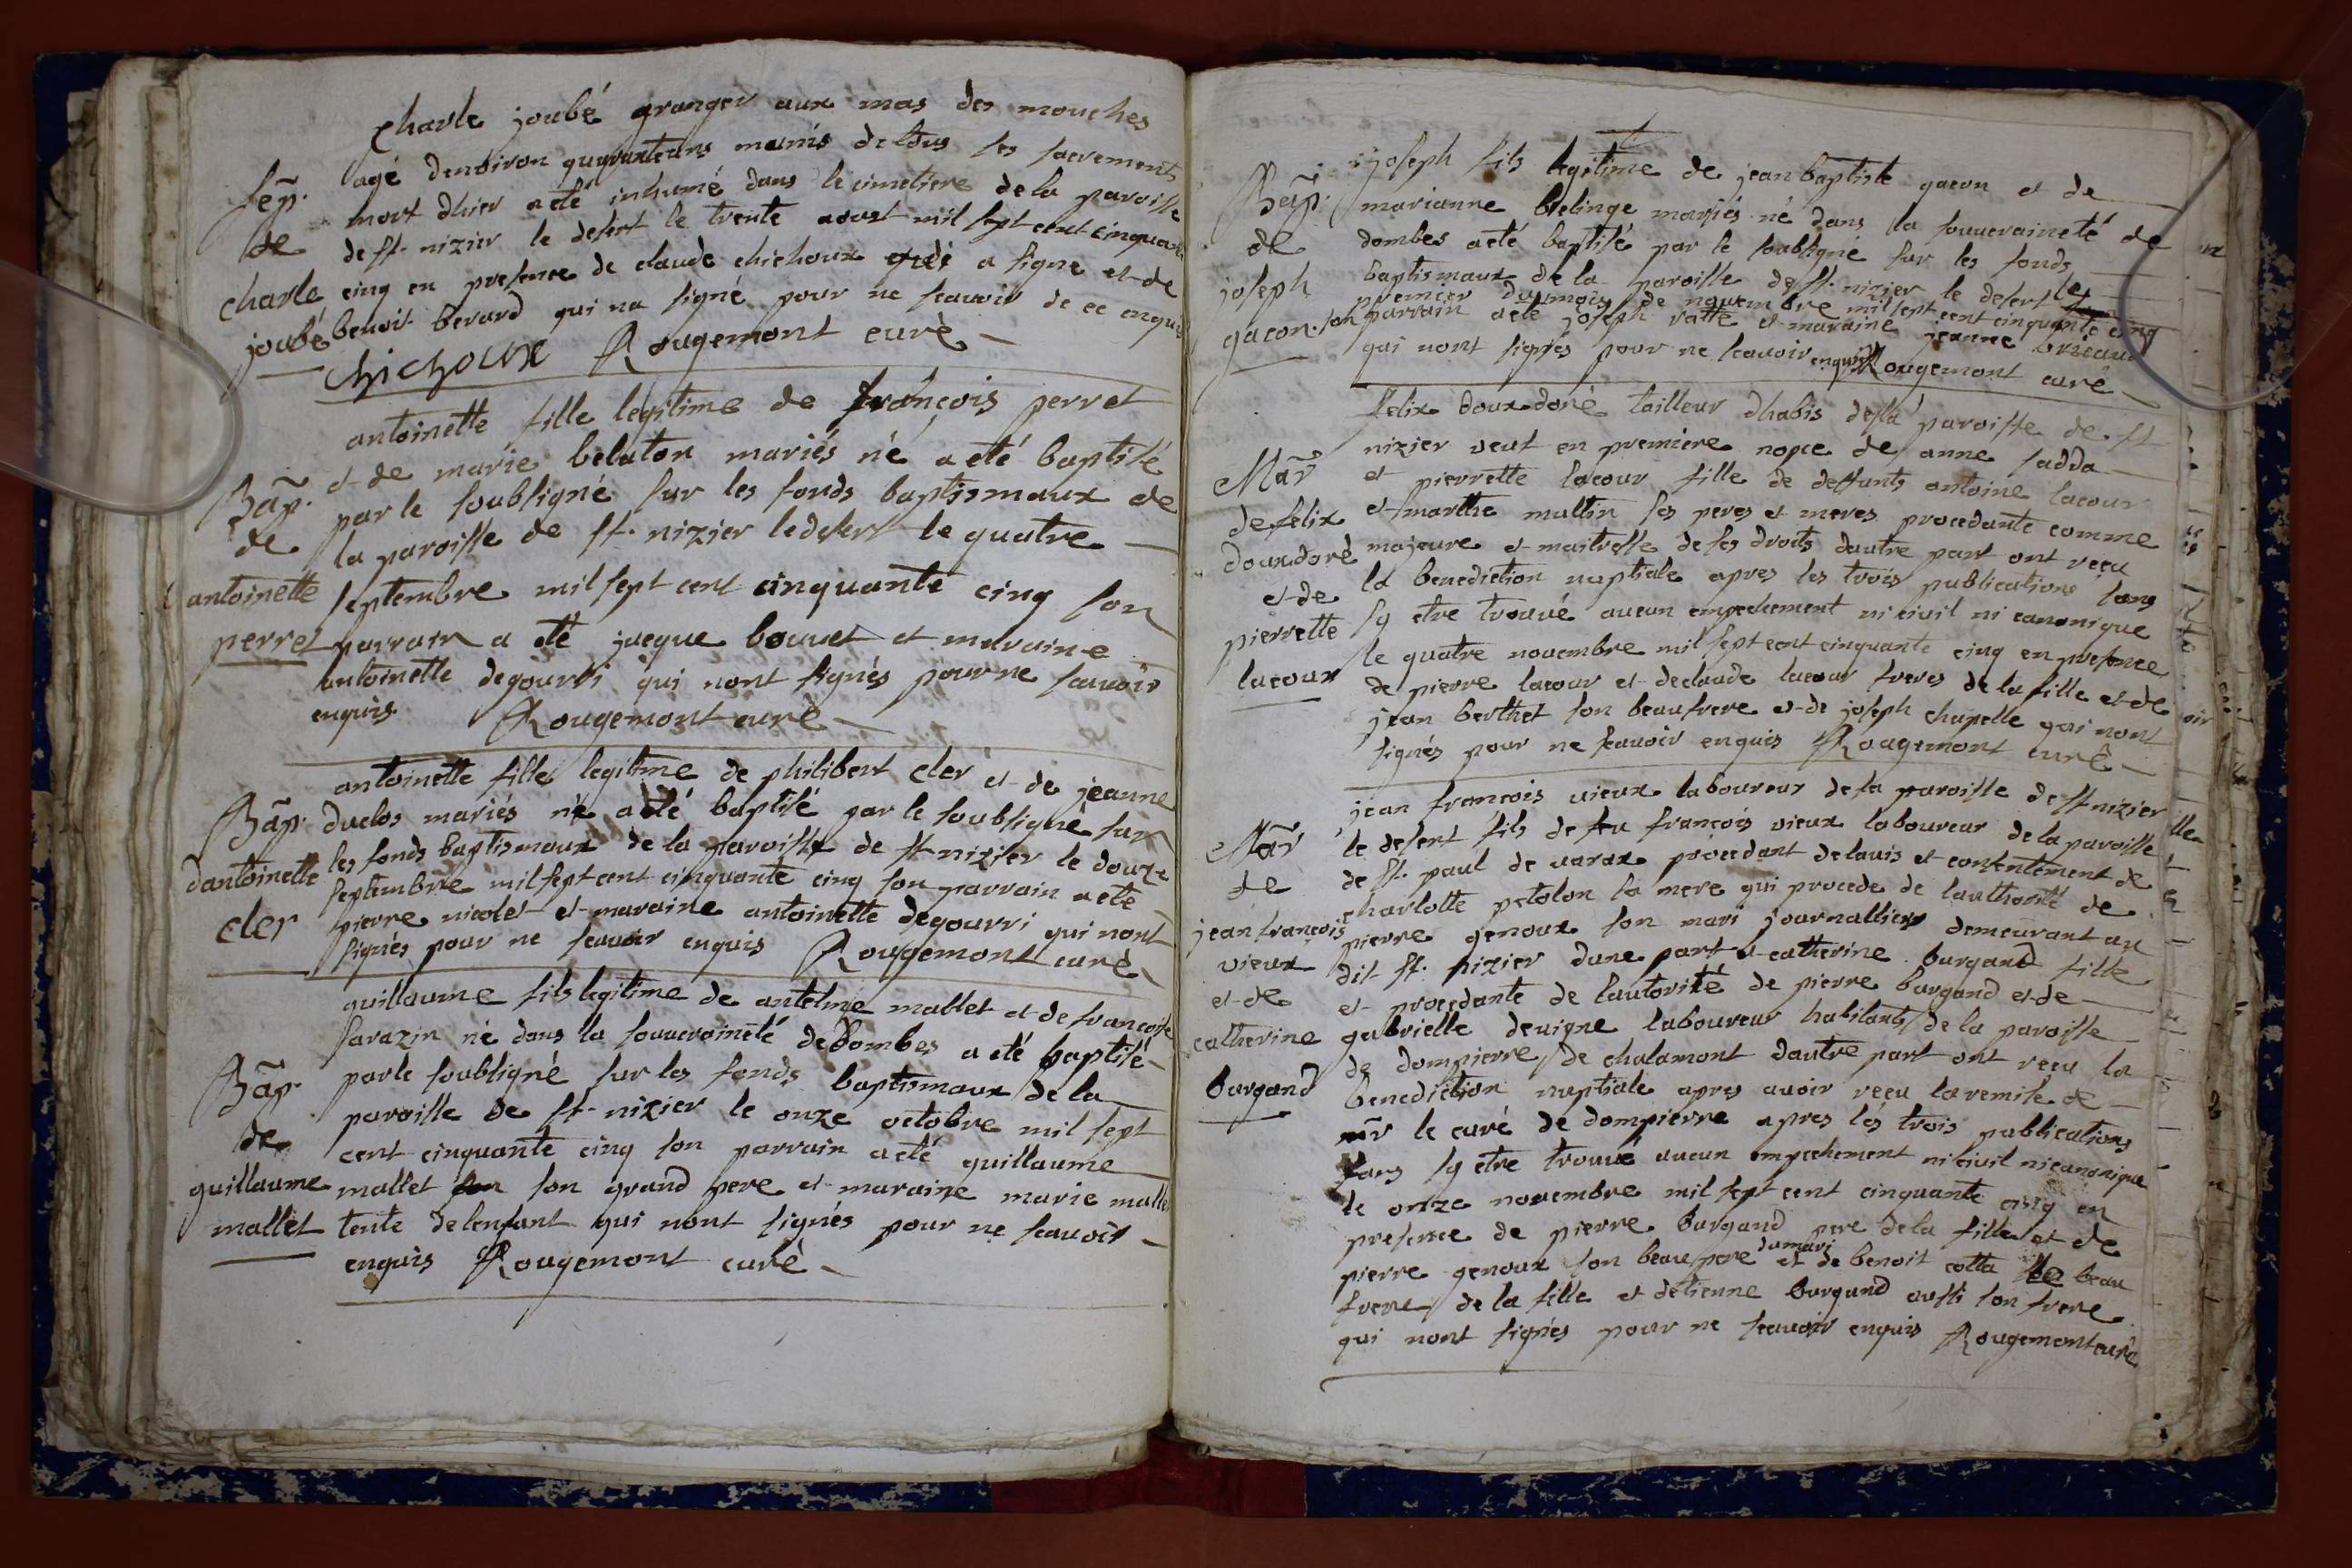 charle joubé granger aux mas des mouches
agé denviron quaranteans mumis de tous ses sacrements
mort dhier a eté inhumé dans le cimetiere de la paroisse
de st. nizier le desert le trente aoust mil sept cent cinquante
cinq en presence de claude chichoux qui a signe et de
benoit berard qui na signé pour ne scavoir de ce enquis
chichoux Rougemont curè
sep.
de
charle
joubé
antoinette fille legitime de françois perret
et de marie belaton mariés né a eté baptisé
par le soubsigné sur les fonds baptismaux de
la paroisse de st. nizier le desert le quatre
septembre mil sept cent cinquante cinq son
parrain a eté jacque bouvet et maraine
antoinette degourri qui nont signés pour ne scavoir
enquis Rougemont curè
Bap.
de
antoinette
perret
antoinette fille legitime de philibert cler et de jeanne
duclos mariés né a eté baptisé par le soubsigné sur
les fonds baptismaux de la paroisse de st nizier le douze
septembre mil sept cent cinquante cinq son parrain a eté
pierre nicolet et maraine antoinette degourri qui nont
signés pour ne scavoir enquis Rougemont curè
Bap.
dantoinette
cler
guillaume fils legitime de antelme mallet et de francoise
sarazin né dans la souveraineté de Dombes a eté baptisé
par le soubsigné sur les fonds baptismaux de la
paroisse de st. nizier le onze octobre mil sept
cent cinquante cinq son parrain a eté guillaume
mallet son grand pere et maraine marie mallet
tente de lenfant qui nont signés pour ne scavoir
enquis Rougemont curè
Bap.
de
guillaume
mallet
joseph fils legitime de jean baptiste gacon et de
marianne brelinge mariés né dans la souveraineté de
dombes a eté baptisé par le soubsigné sur les fonds
baptismaux de la paroisse de st. nizier le desert le
premier du mois de novembre mil sept cent cinquante cinq
son parrain a eté joseph ratte et maraine jeanne
qui nont signés pour ne scavoir enquis Rougemont curê
Bap.
de
joseph
gacon.
felix douxdoré tailleur dhabis de la paroisse de st
nizier veut en premiere nopce de anne sadda
et pierrette lacour fille de deffunts antoine lacour
et marthe muttin ses peres et meres procedante comme
majeure et maitresse de ses droits dautre part ont reçu
la benediction nuptiale apres les trois publications sans
sy etre trouvé aucun empechement ni civil ni canonique
le quatre novembre mil sept cent cinquante cinq en presence
de pierre lacour et de claude lacour freres de la fille et de
jean berthet son beaufrere et de joseph chapelle qui nont
signés pour ne scavoir enquis Rougemont curê
Mar
de felix
douxdoré
et de
pierrette
lacour
jean francois vieux laboureur de la paroisse de st nizier
le desert fils de feu françois vieux laboureur de la paroisse
de st. paul de varax procedant de lavis et consentement de
charlotte petolon sa mere qui procede de lauthorité de
pierre genoux son mari journallier demeurant au
dit st. nizier dune part et catherine burgand fille
et procedante de lautorité de pierre burgand et de
gabrielle devigne laboureur habitants de la paroisse
de dompierre de chalamont dautre part ont reçu la
benediction nuptiale apres avoir reçu la remise de
mr le curé de dompierre apres les trois publications
sans sy etre trouvé aucun empechement ni civil ni canonique
le onze novembre mil sept cent cinquante cinq en
presence de pierre burgand pere de la fille et de
pierre genoux son beaupere du mari et de benoit cotta beau
frere de la fille et detienne burgand aussi son frere
qui nont signés pour ne scavoir enquis Rougemont curê
Mar
de
jean françois
vieux
et de
catherine
burgand